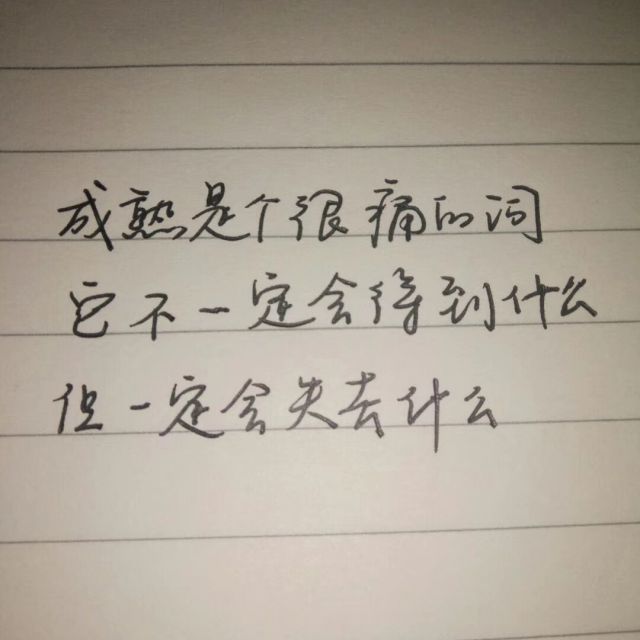 成熟是个很痛的词
它不一定会得到什么
但一定会失去什么